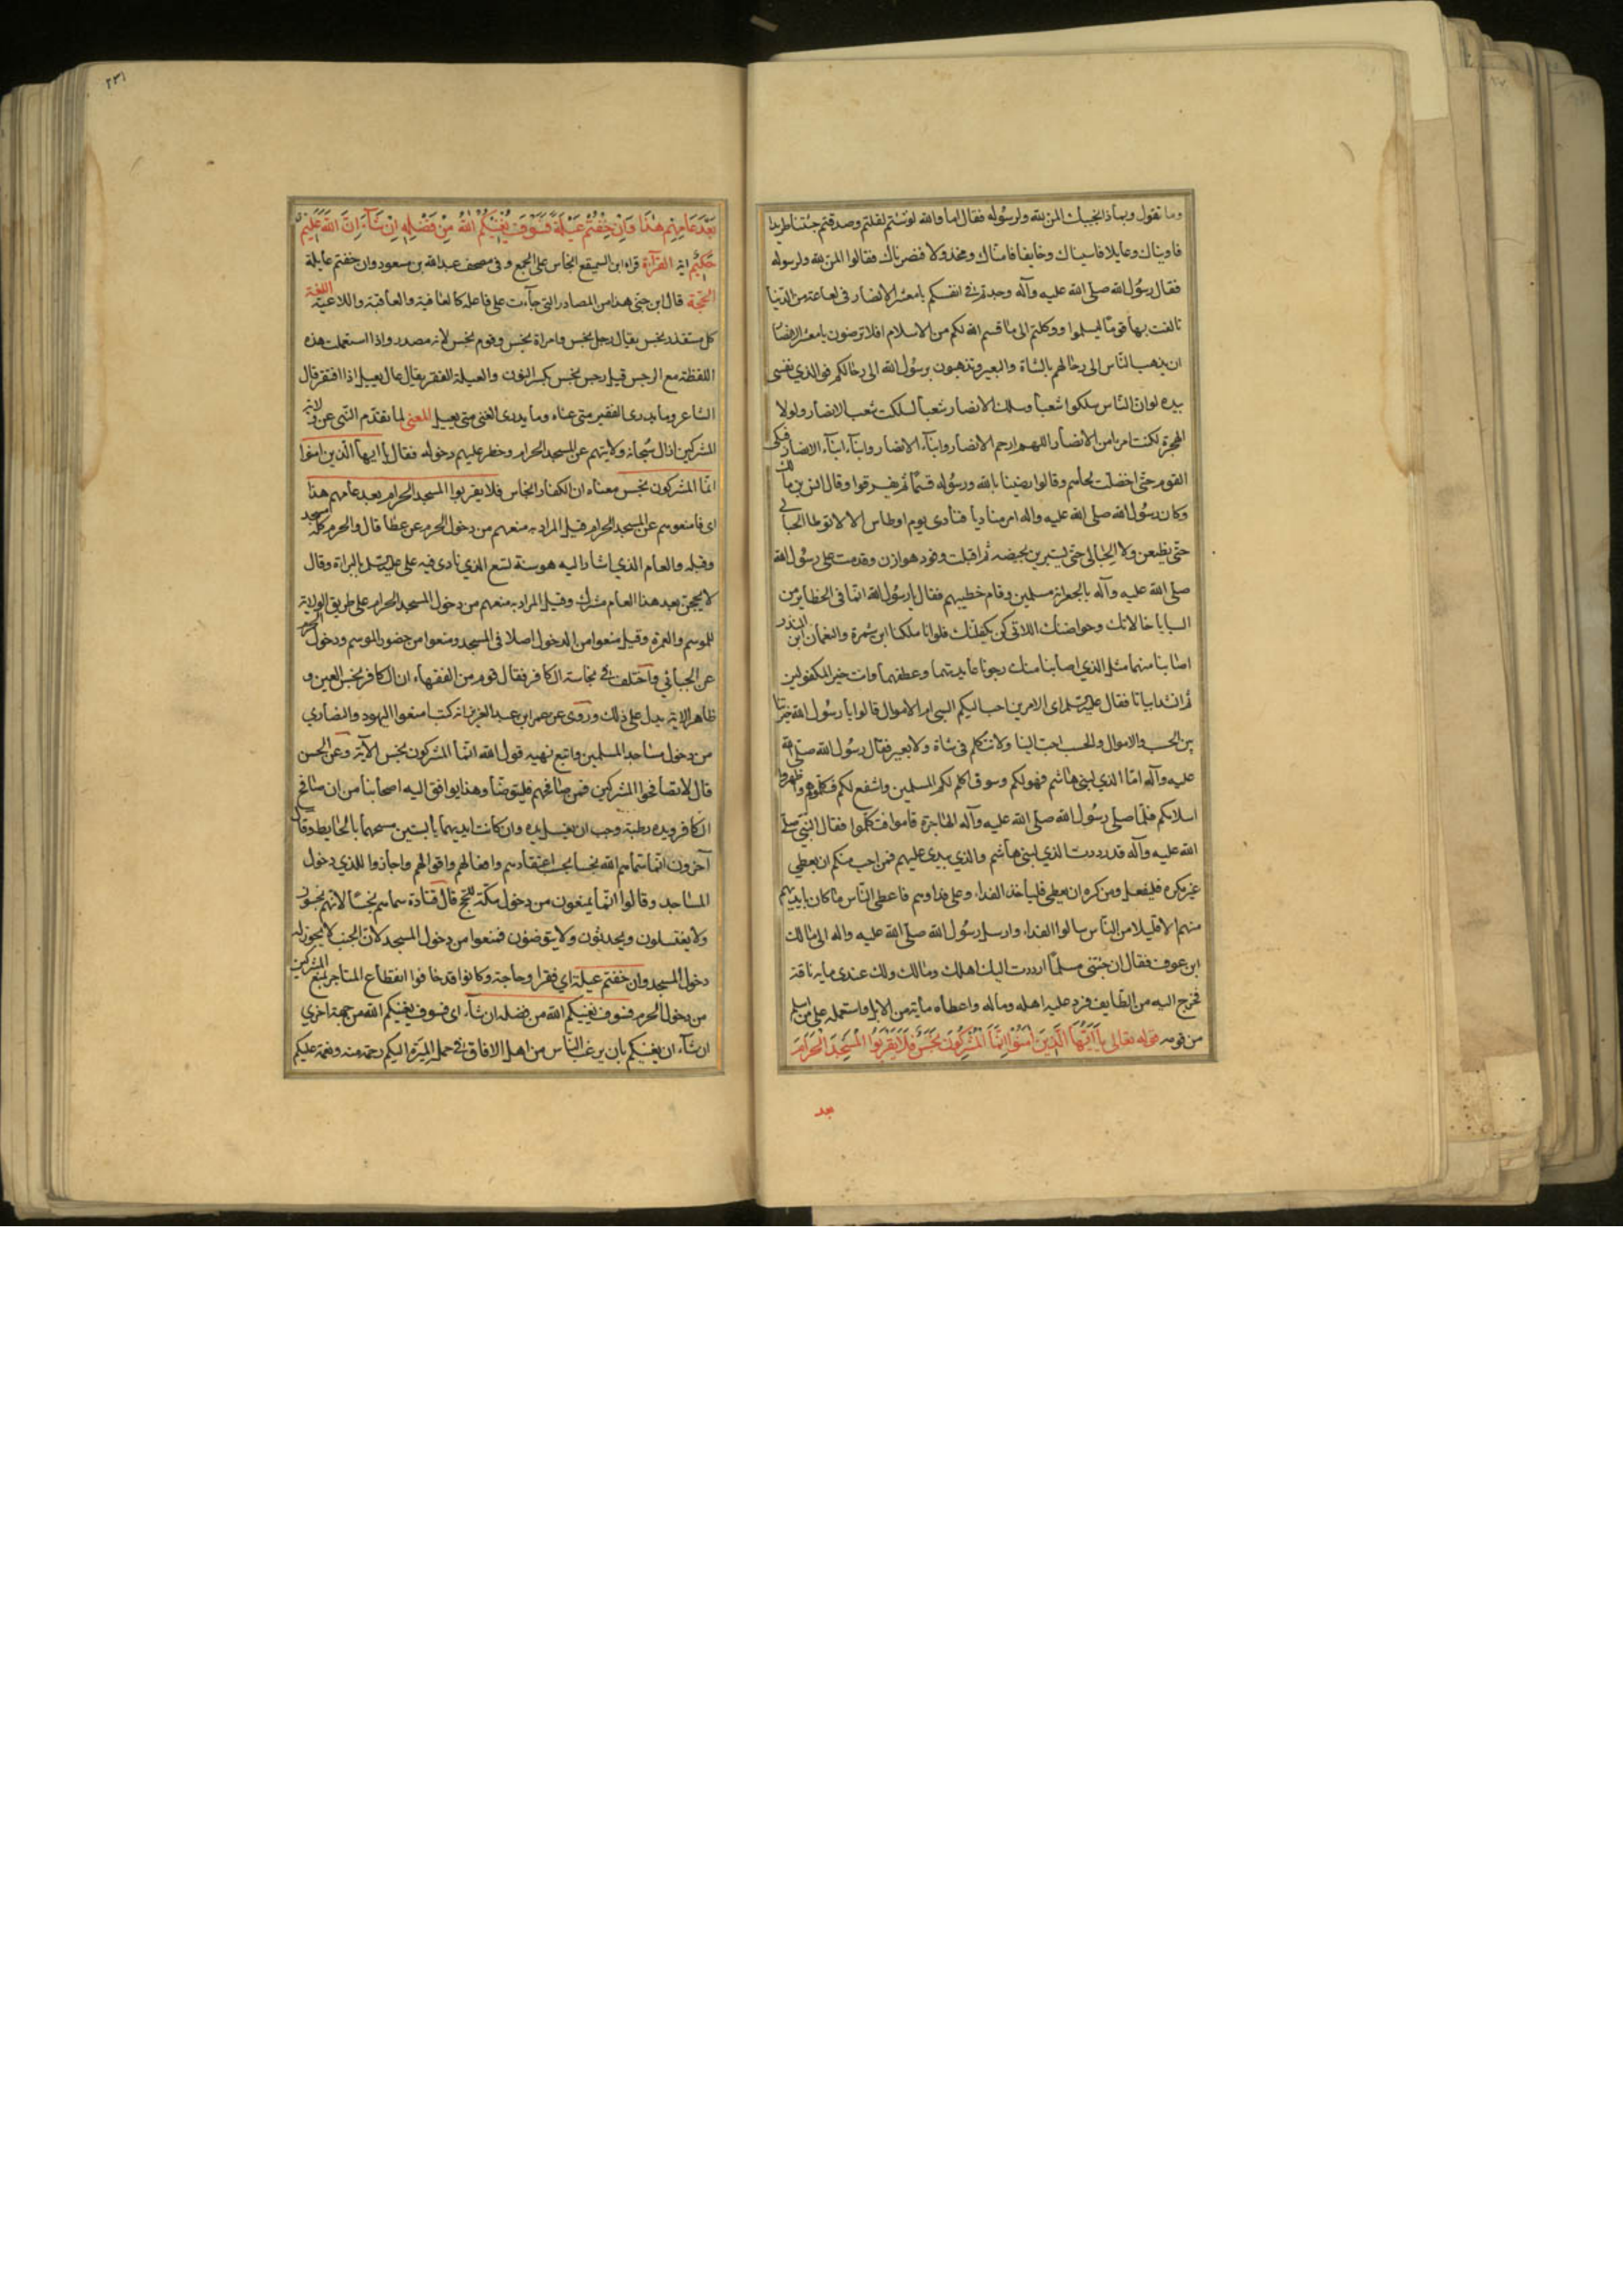 وما نقول وبماذا نجيبك المن لله ولرسوله فقال اما والله لو شئتم لقلتم وصدقتم جئتنا طريدا
فاويناك وعايلا فاسيناك وخايفا فامناك ومخذولا فنصرناك فقالوا المن لله ولرسوله
فقال رسول الله صلى الله عليه وآله وجدتم في انفسكم يا معشر الانصار في لعاعة من الدنيا
تالفت بها قوما ليسلموا ووكلتم الى ما قسم الله لكم من الاسلام افلا ترضون يا معشر الانصار
ان يذهب الناس الى رحالهم بالشاة والبعير وتذهبون برسول الله الى رحالكم فوالذي نفسي
بيده لو ان الناس سلكوا شعبا وسلك الانصار شعبا لسلكت شعب الانصار ولولا
الهجرة لكنت امرءا من الانصار اللهم ارحم الانصار وابناء الانصار وابناء ابناء الانصار فبكى
القوم حتى اخضلت لحاهم وقالوا رضينا بالله ورسوله قسما ثم تفرقوا وقال انس بن مالك
وكان رسول الله صلى الله عليه واله امر مناديا فنادى يوم اوطاس الا لا توطا الحبالى
حتى يضعن ولا الحيالى حتى يستبرين بحيضه ثم اقبلت وفود هوازن وقدمت على رسول الله
صلى الله عليه وآله بالجعرانة مسلمين وقام خطيبهم فقال يا رسول الله انما في الحظاير من
السبايا خالاتك وحواضنك اللاتي كن يكفلنك فلو انا ملكنا ابن شمرة والنعمان ابن المنذر
اصابنا منهما مثل الذي اصابنا منك رجونا عايدتهما وعطفهما وانت خير المكفولين
ثم انشد ابياتا فقال عليه السلم اي الامرين احب اليكم السبي او الاموال قالوا يا رسول الله خيرتنا
بين الحسب والاموال والحسب احب الينا ولا نتكلم في شاة ولا بعير فقال رسول الله صلى الله
عليه وآله اما الذي لبني هاشم فهو لكم وسوف اكلم لكم المسلمين واشفع لكم فكلموهم واظهروا
اسلامكم فلما صلى رسول الله صلى الله عليه وآله الهاجرة قاموا فتكلموا فقال النبي صلى
الله عليه وآله قد رددت الذي لبني هاشم والذي بيدي عليهم فمن احب منكم ان يعطي
غير مكره فليفعل ومن كره ان يعطي فلياخذ الفداء وعلي فداوهم فاعطى الناس ما كان بايديهم
منهم الا قليلا من الناس سالوا الفداء وارسل رسول الله صلى الله عليه واله الى مالك
ابن عوف فقال ان جئتني مسلما رددت اليك اهلك ومالك ولك عندي ماية ناقة
فخرج اليه من الطايف فرد عليه اهله وماله واعطاه ماية من الابل واستعمله على من اسلم
من قومه قوله تعالى يا ايها الذين امنوا انما المشركون نجس فلا يقربوا المسجد الحرام
بعد
٢٣١
بعد عامهم هذا وان خفتم عيلة فسوف يغنيكم الله من فضله ان شاء ان الله عليم
حكيم اية القراءة قراءة ابن السميفع انجاس على الجمع وفي مصحف عبد الله بن مسعود وان خفتم عايلة
الحجة قال ابن جنى هذا من المصادر التي جاءت على فاعلة كالعافية والعاقبة واللاغية اللغة
كل مستقذر نجس يقال رجل نجس وامراة نجس وقوم نجس لانه مصدر واذا استعملت هذه
اللفظة مع الرجس قيل رجس نجس بكسر النون والعيلة الفقر يقال عال يعيل اذا افتقر قال
الشاعر وما يدري الفقير متى غناه وما يدري الغني متى يعيل المعنى لما تقدم النهي عن ولاية
المشركين ازال سبحانه ولايتهم عن المسجد الحرام وحظر عليهم دخوله فقال يا ايها الذين امنوا
انما المشركون نجس معناه ان الكفار انجاس فلا يقربوا المسجد الحرام بعد عامهم هذا
اي فامنعوهم عن المسجد الحرام قيل المراد به منعهم من دخول الحرم عن عطا قال والحرم كله مسجد
وقبله والعام الذي اشار اليه هو سنة تسع الذي نادى فيه علي عليه السلم بالبراة وقال
لا يحجن بعد هذا العام مشرك وقيل المراد به منعهم من دخول المسجد الحرام على طريق الولاية
للموسم والعمرة وقيل منعوا من الدخول اصلا في المسجد ومنعوا من حضور الموسم ودخول الحرم
عن الجبائي واختلف في نجاسة الكافر فقال قوم من الفقهاء ان الكافر نجس العين و
ظاهر الاية يدل على ذلك وروى عن عمر ابن عبد العزيز انه كتب امنعوا اليهود والنصارى
من دخول مساجد المسلمين واتبع نهيه قول الله انما المشركون نجس الآية وعن الحسن
قال لا تصافحوا المشركين فمن صافحهم فليتوضأ وهذا يوافق اليه اصحابنا من ان من صافح
الكافر ويده رطبة وجب ان يغسل يده وان كانت ايديهما يابستين مسحهما بالحايط وقال
آخرون انما سماهم الله نجسا بخبث اعتقادهم وافعالهم واقوالهم واجازوا للذمي دخول
المساجد وقالوا انما يمنعون من دخول مكة للحج قال قتادة سماهم نجسا لانهم يجنبون
ولا يغتسلون ويحدثون ولا يتوضئون فمنعوا من دخول المسجد لان الجنب لا يجوز له
دخول المسجد وان خفتم عيلة اي فقرا وحاجة وكانوا قد خافوا انقطاع المتاجر بمنع المشركين
من دخول الحرم فسوف يغنيكم الله من فضله ان شاء اي فسوف يغنيكم الله من جهة اخرى
ان شاء ان يغنيكم بان يرغب الناس من اهل الافاق في حمل الميرة اليكم رحمة منه ونعمة عليكم